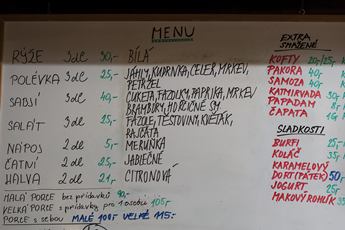 MENU
RÝŽE 3dc 30,- BÍLÁ
POLÉVKA 3dc 25,- JÁHLY, KUDRNKA, CELER, MRKEV, PETRŽEL
SABJÍ 3dc 40,- CUKETA, FAZOLKY, PAPRIKA, MRKEV, BRAMBORY, HOŘČIČNÉ SM.
SALÁT 3dc 25,- FAZOLE, TĚSTOVINY, KVĚTÁK, RAJČATA
NÁPOJ 2dc 5,- MERUŇKA
ČATNÍ 2dc 25,- JABLEČNÉ
HALVA 2dc 21,- CITRONOVÁ
MALÁ PORCE bez přídavků 90,-
VELKÁ PORCE s přídavky pro 1 osobu 105,-
PORCE s sebou MALÉ 100,- VELKÉ 115,-
EXTRA
SMAŽENÉ
KOFTY 20/25,-
PAKORA 40,-
SAMOZA 40,-
KAČMIRVADA 30,-
PAPADAM 8,-
ČAPATA
SLADKOSTI
BURFI 25,-
KOLÁČ 35,-
KARAMELOVÝ
DORT (PÁTEK) 50,-
JOGURT 25,-
MAKOVÝ ROHLÍK